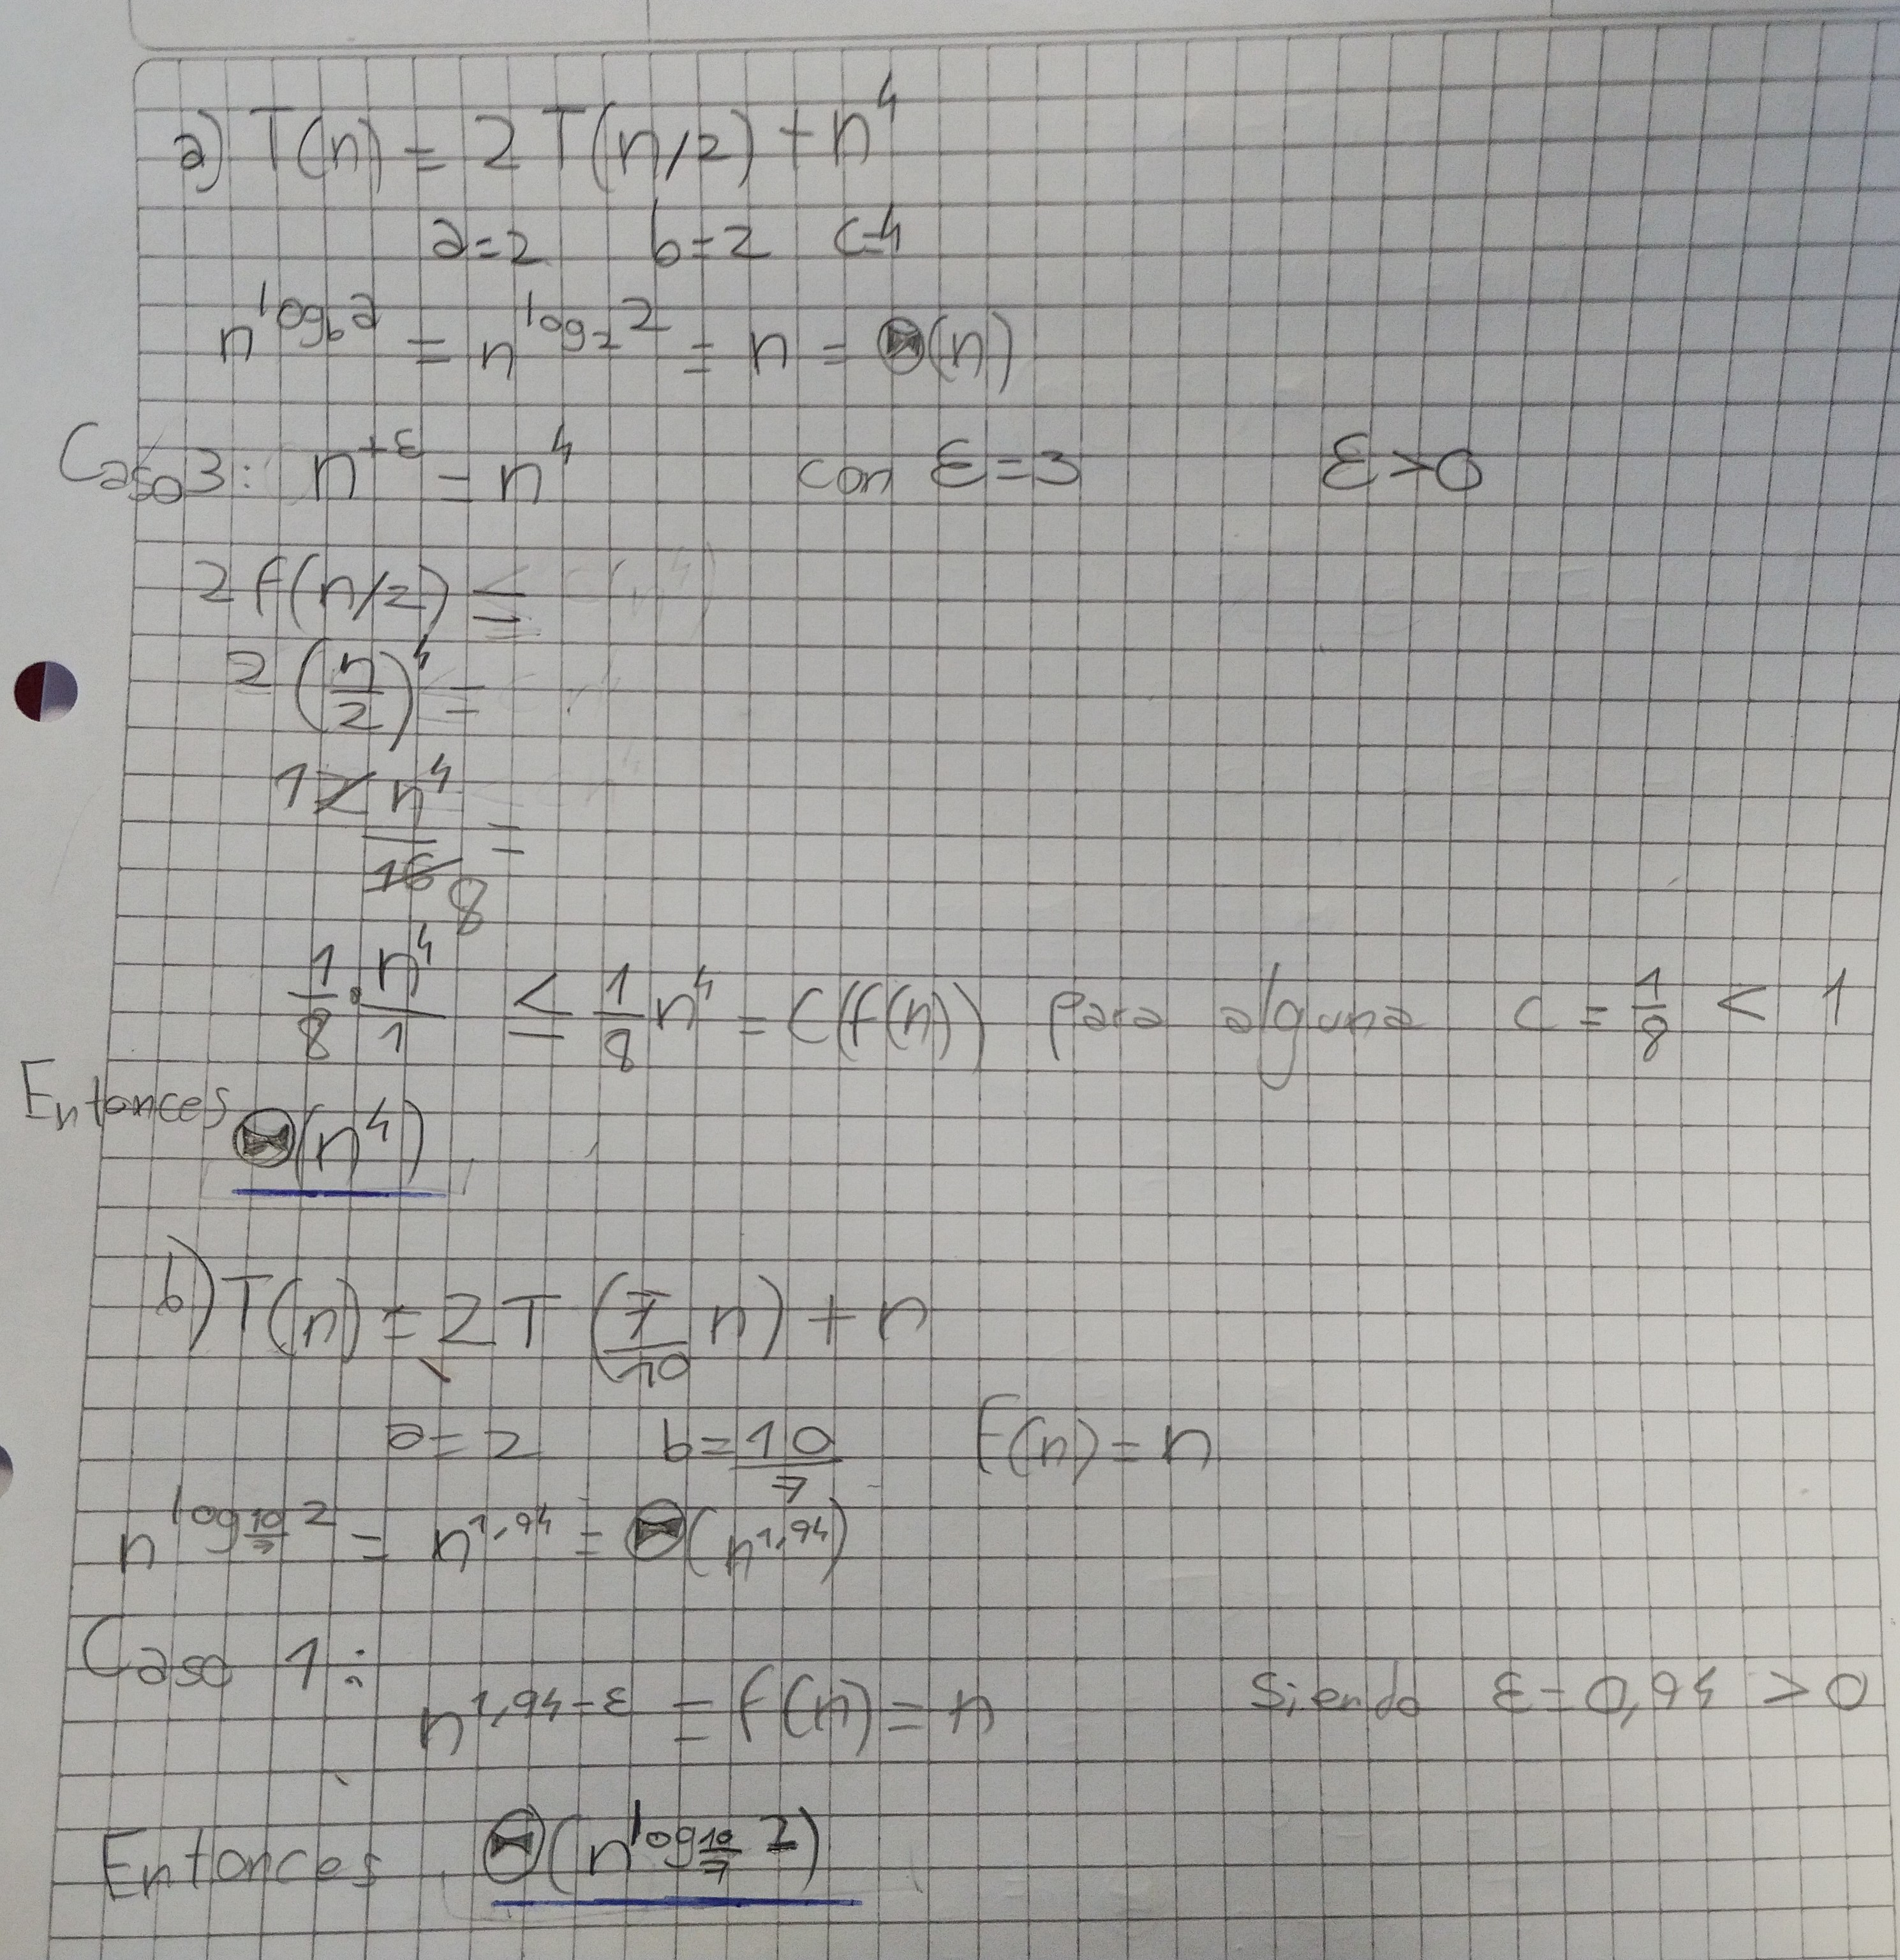 a) T(n) = 2 T(n/2) + n^4
a=2 b=2 c=4
n^{log_b a} = n^{log_2 2} = n = Θ(n)
Caso 3: n^{+ε} = n^4 con ε=3 ε>0
2 f(n/2) ≤
2 (n/2)^4 =
1 2 n^4 / 16 8 =
1/8 · n^4/1 ≤ 1/8 n^4 = C(f(n)) para alguna c = 1/8 < 1
Entonces Θ(n^4)
b) T(n) = 2 T (7/10 n) + n
a=2 b=10/7 f(n)=n
n^{log_{10/7} 2} = n^{1,94} = Θ(n^{1,94})
Caso 1:
n^{1,94-ε} = f(n) = n Siendo ε=0,94 > 0
Entonces Θ(n^{log_{10/7} 2})